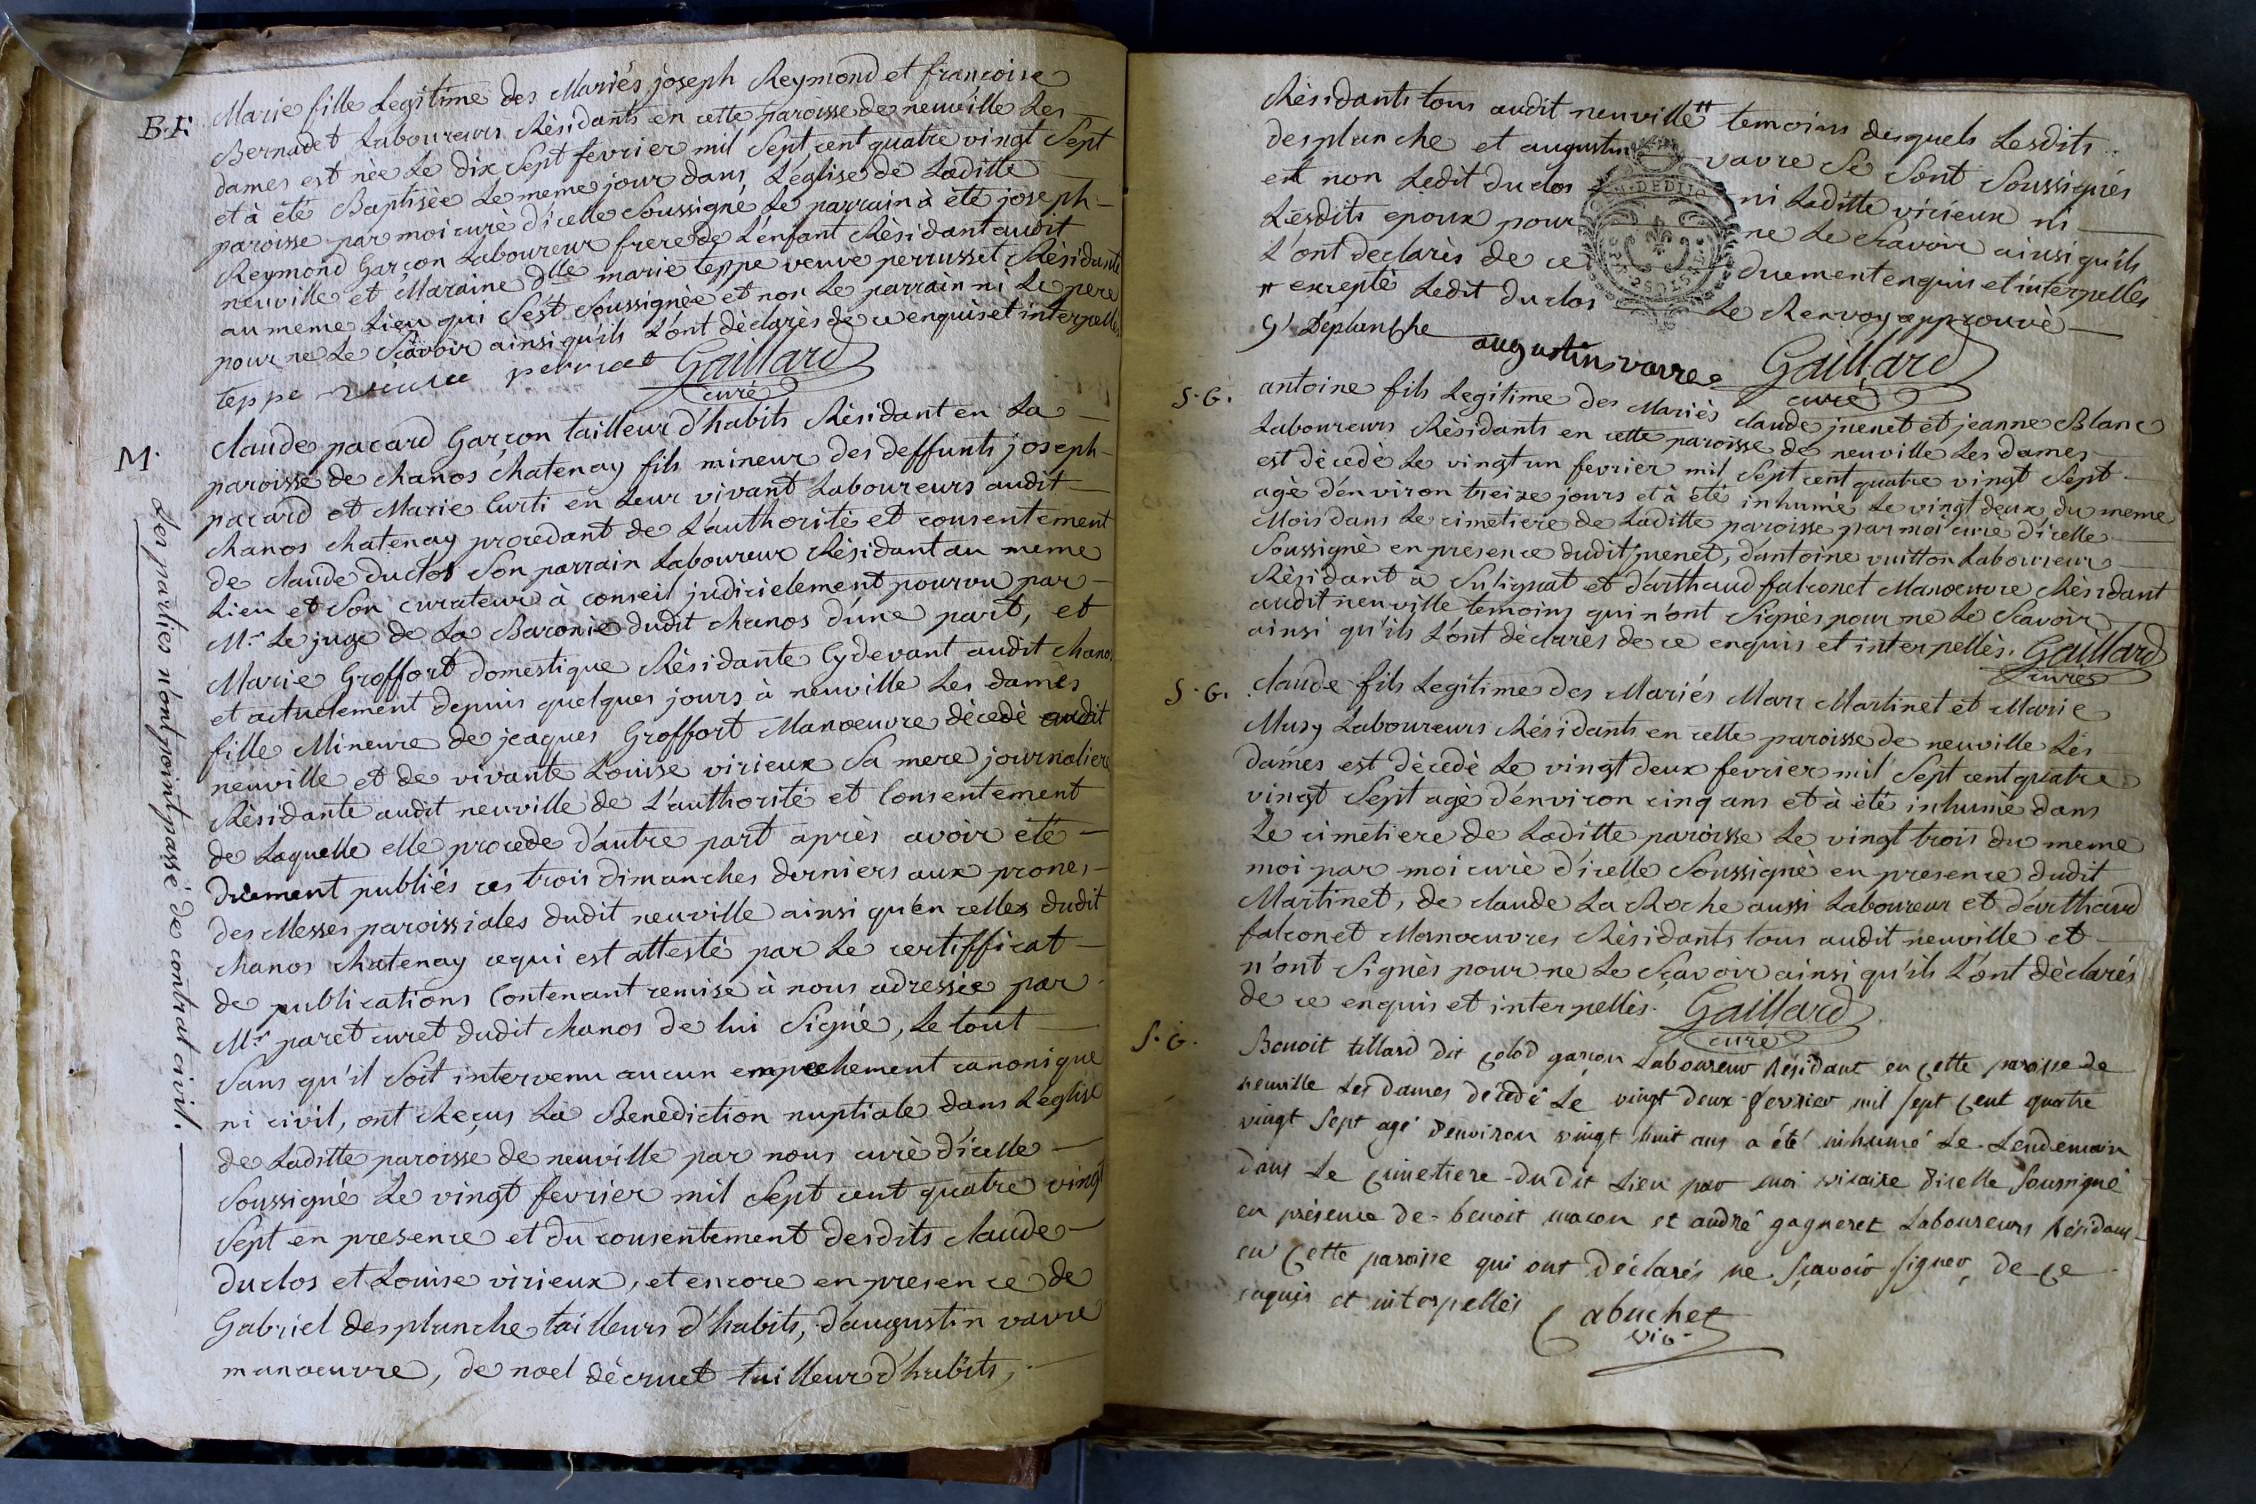 B.F.
Marie fille Legitime des Mariés joseph Reymond et francoise
Bernadet Laboureurs Résidants en cette paroisse de neuville Les
dames est née Le dix Sept fevrier mil Sept cent quatre vingt Sept
et à été Baptisée Le meme jour dans L'église de Laditte
paroisse par moi curé d'icelle Soussigné Le parrain à été joseph
Reymond Garçon Laboureur frere de L'enfant Résidant audit
neuville et Maraine dlle marie teppe veuve perrusset Résidante
au meme Lieu qui S'est Soussignée et non Le parrain ni Le pere
pour ne Le Scavoir ainsi qu'ils L'ont déclarés de ce enquis et interpellés
teppe veuve Gaillard
curé
M.
Claude pacard Garçon tailleur d'habits Résidant en La
paroisse de chanos chatenay fils mineur des deffunts joseph
pacard et Marie Curti en Leur vivant Laboureurs audit
chanos chatenay procedant de L'authorité et consentement
de claude duclos Son parrain Laboureur Résidant au meme
Lieu et Son curateur à conseil judicielement pourvu par
Mr. Le juge de La Baronie dudit chanos d'une part, et
Marie Groffort domestique Résidante Cydevant audit chanos
et actuelement depuis quelques jours à neuville Les dames
fille Mineure de jeaques Groffort Manoeuvre décedé audit
neuville et de vivante Louise virieux Sa mere journaliere
Résidante audit neuville de L'authorité et Consentement
de Laquelle elle procede d'autre part après avoir été
duement publiés ces trois dimanches derniers aux prones
des Messes paroissiales dudit neuville ainsi qu'en celles dudit
chanos chatenay ce qui est attesté par Le certifficat
de publications Contenant remise à nous adressée par
Mr. paret curet dudit chanos de lui Signé, Le tout
Sans qu'il Soit intervenu aucun empechement canonique
ni civil, ont Reçus La Benediction nuptiale dans L'église
de Laditte paroisse de neuville par nous curé d'icelle
Soussigné Le vingt fevrier mil Sept cent quatre vingt
Sept en presence et du consentement desdits claude
duclos et Louise virieux, et encore en presence de
Gabriel desplanche tailleurs d'habits, d'augustin vavre
manoeuvre, de noel décruet tailleur d'habits,
Les parties n'ont point passé de contrat civil.
Résidants tous audit neuville temoins desquels Lesdits
desplanche et augustin vavre Se Sont Soussignés
et non Ledit duclos ni Laditte virieux ni
Lesdits epoux pour ne Le Scavoir ainsi qu'ils
L'ont declarés de ce duement enquis et interpellés
excepté Ledit duclos Le Renvoy approuvé
g Déplanche augustin vavre Gaillard
curé
S.G.
antoine fils Legitime des Mariés claude juenet et jeanne Blanc
Laboureurs Résidants en cette paroisse de neuville Les dames
est décedé Le vingt un fevrier mil Sept cent quatre vingt Sept
agé d'environ treize jours et à été inhumé Le vingt deux du meme
Mois dans Le cimetiere de Laditte paroisse par moi curé d'icelle
Soussigné en presence dudit juenet, d'antoine vuitton Laboureur
Résidant à Sulignat et d'arthaud falconet Manoeuvre Résidant
audit neuville temoins qui n'ont Signés pour ne Le Scavoir
ainsi qu'ils L'ont déclarés de ce enquis et interpellés. Gaillard
curé
S.G.
Claude fils Legitime des Mariés Marc Martinet et Marie
Musy Laboureurs Résidants en cette paroisse de neuville Les
dames est décedé Le vingt deux fevrier mil Sept cent quatre
vingt Sept agé d'environ cinq ans et à été inhumé dans
Le cimetiere de Laditte paroisse Le vingt trois du meme
moi par moi curé d'icelle Soussigné en presence dudit
Martinet, de claude La Roche aussi Laboureur et d'arthaud
falconet Manoeuvres Résidants tous audit neuville et
n'ont Signés pour ne Le Sçavoir ainsi qu'ils L'ont déclarés
de ce enquis et interpellés. Gaillard
curé
S.G.
Benoit tillard dit colod garcon Laboureur Résidant en cette paroisse de
neuville Les Dames décédé Le vingt deux fevrier mil sept cent quatre
vingt Sept agé d'environ vingt huit ans a été inhumé Le Lendemain
dans Le cimetiere dudit Lieu par moi vicaire d'icelle Soussigné
en présence de benoit macon et andré gagneret Laboureurs Résidans
en cette paroisse qui ont déclarés ne Sçavoir signer, de ce
enquis et interpellés Cabuchet
vic.